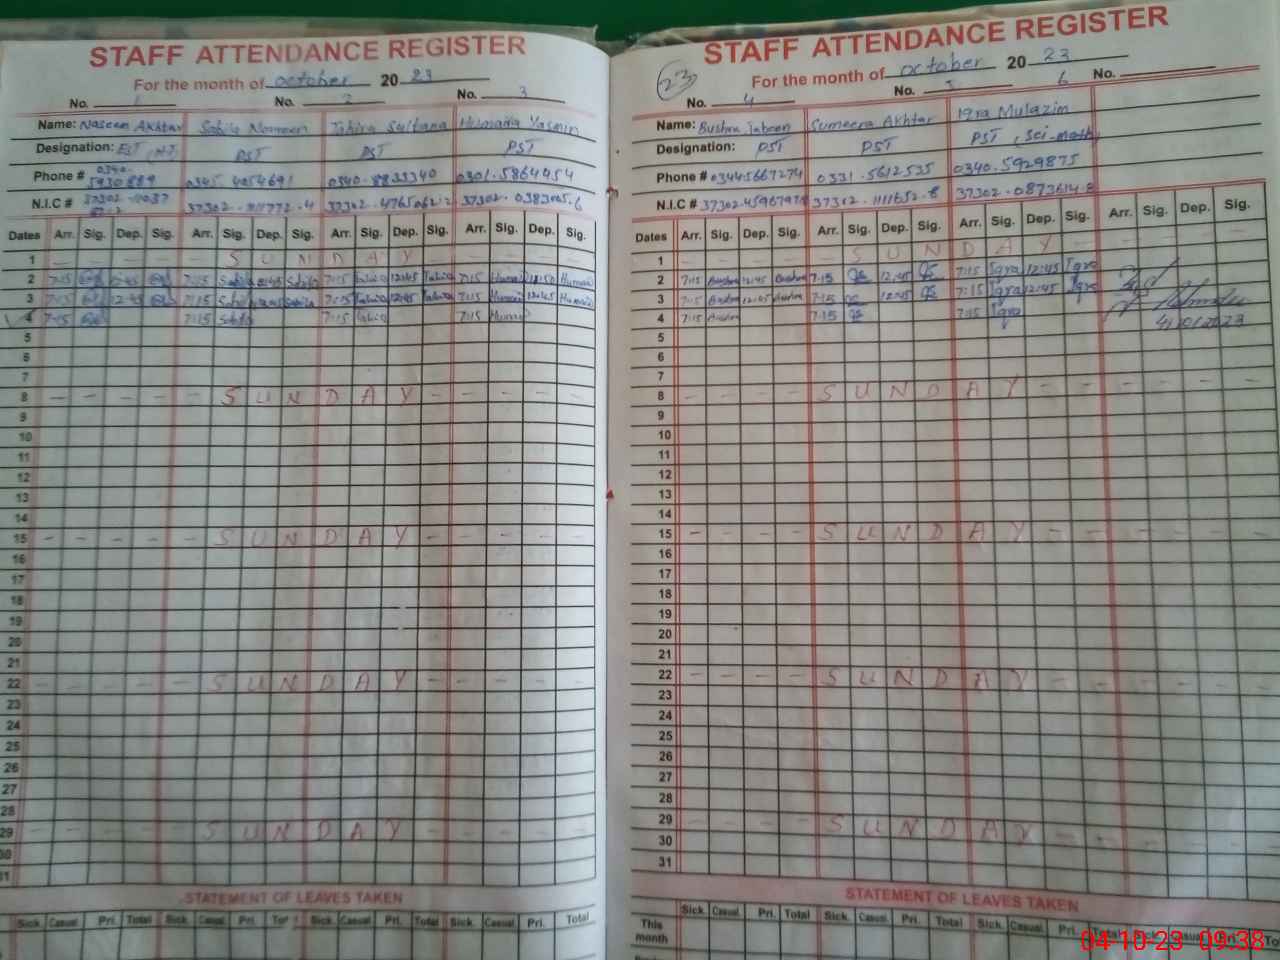 STAFF ATTENDANCE REGISTER
For the month of october 2023
No. 1 No. 2 No. 3
Name: Naseem Akhtar Sabila Noureen Tahira Sultana Humaira Yasmin
Designation: EST PST PST PST
Phone # 0340-5930889 0345-4054691 0340-8833340 0301-5864454
N.I.C # 37302-
Dates Arr. Sig. Dep. Sig. Arr. Sig. Dep. Sig. Arr. Sig. Dep. Sig. Arr. Sig. Dep. Sig.
1 SUNDAY
2 7:15 7:15 Sabila 12:45 Sabila 7:15 Tahira 12:45 Tahira 7:15 Humaira Humaira
3 7:15 12:45 7:15 Sabila 12:45 Sabila 7:15 Tahira 12:45 Tahira 7:15 Humaira 12:45 Humaira
4 7:15 7:15 Sabila 7:15 Tahira 7:15 Humaira
5
6
7
8 SUNDAY
9
10
11
12
13
14
15 SUNDAY
16
17
18
19
20
21
22 SUNDAY
23
24
25
26
27
28
29 SUNDAY
30
31
STATEMENT OF LEAVES TAKEN
Sick. Casual. Pri. Total Sick. Casual. Pri. Tot Sick. Casual. Pri. Total Sick. Casual. Pri. Total
STAFF ATTENDANCE REGISTER
23 For the month of october 2023
No. 4 No. 5 6 No.
Name: Bushra Jabeen Sumeera Akhtar Iqra Mulazim
Designation: PST PST PST (Sci-math)
Phone # 03445667274 0331-5612535 0340-5929875
N.I.C # 37312-1111652-8 37302-0873614-2
Dates Arr. Sig. Dep. Sig. Arr. Sig. Dep. Sig. Arr. Sig. Dep. Sig. Arr. Sig. Dep. Sig.
1 SUNDAY
2 7:15 Bushra 12:45 Bushra 7:15 12:45 7:15 Iqra 12:45 Iqra
3 7:15 Bushra 12:45 Bushra 7:15 12:45 7:15 Iqra 12:45 Iqra
4 7:15 Bushra 7:15 7:15 Iqra
5
6
7
8 SUNDAY
9
10
11
12
13
14
15 SUNDAY
16
17
18
19
20
21
22 SUNDAY
23
24
25
26
27
28
29 SUNDAY
30
31
STATEMENT OF LEAVES TAKEN
Sick. Casual. Pri. Total Sick. Casual. Pri. Total Sick. Casual. Pri. Total Sick. Casual. Pri. To
This month
04-10-23 09:38